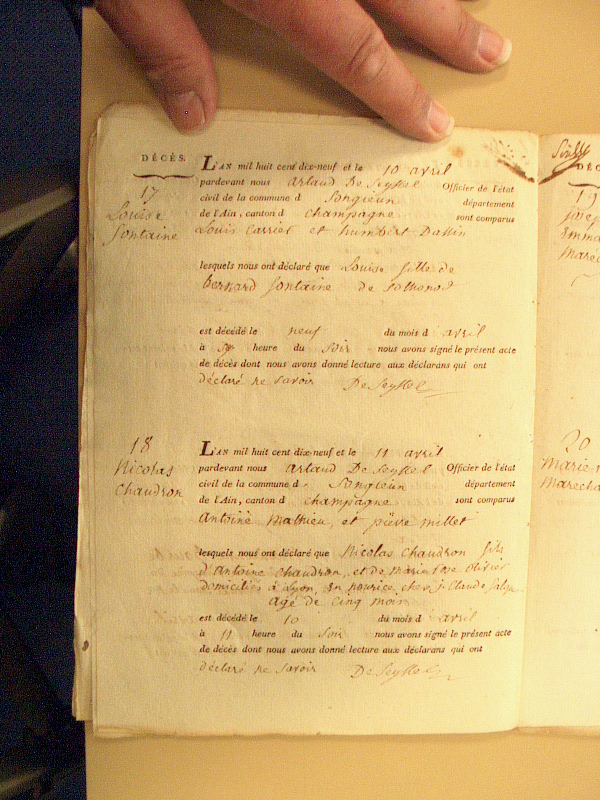 DÉCÈS.
17
Louise
fontaine
L'AN mil huit cent dix-neuf et le 10 avril
pardevant nous artaud De Seyssel Officier de l'état
civil de la commune d Songieun département
de l'Ain, canton d champagne sont comparus
Louis Carrier et humbert Dassin
lesquels nous ont déclaré que Louise fille de
bernard fontaine de Sothonod
est décédé le neuf du mois d avril
à heure du Soir nous avons signé le présent acte
de décès dont nous avons donné lecture aux déclarans qui ont
déclaré ne savoir De Seyssel
18
Nicolas
Chaudron
L'AN mil huit cent dix-neuf et le 11 avril
pardevant nous artaud De Seyssel Officier de l'état
civil de la commune d Songieun département
de l'Ain, canton d champagne sont comparus
Antoine Mathieu, et pierre millet
lesquels nous ont déclaré que Nicolas Chaudron fils
d'Antoine Chaudron, et de marie olivier
domiciliés à Lyon, en nourice chez j. Claude
agé de Cinq mois
est décédé le 10 du mois d avril
à 11 heure du Soir nous avons signé le présent acte
de décès dont nous avons donné lecture aux déclarans qui ont
déclaré ne savoir De Seyssel
DÉC
19
20